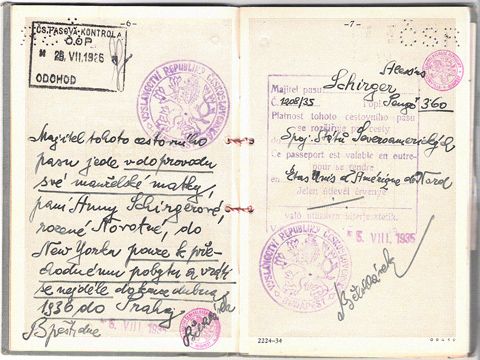 -6-
ČS. PASOVÁ KONTROLA
28. VII. 1936
ODCHOD
VYSLANECTVÍ REPUBLIKY ČESKOSLOVENSKÉ
Majitel tohoto cestovního
pasu jede v doprovodu
své manželské matky,
paní Anny Schirgerové,
rozené Novotné, do
New Yorku pouze k pře-
chodnému pobytu a vrátí
se nejdéle do konce dubna
1936 do Prahy.
B'pešť dne
5. VIII. 1935
-7-
Majitel pasu
Schirger
Č. 1208/35
Pengő 3'60
Platnost tohoto cestovního pasu
se rozšiřuje pro cesty
do
Spoj. Států Severoamerických
Ce passeport est valable en outre
pour se rendre
Etats Unis d'Amérique du Nord
Jelen útlevél érvényes
VYSLANECTVÍ REPUBLIKY ČESKOSLOVENSKÉ
5. VIII. 1935
2224-34